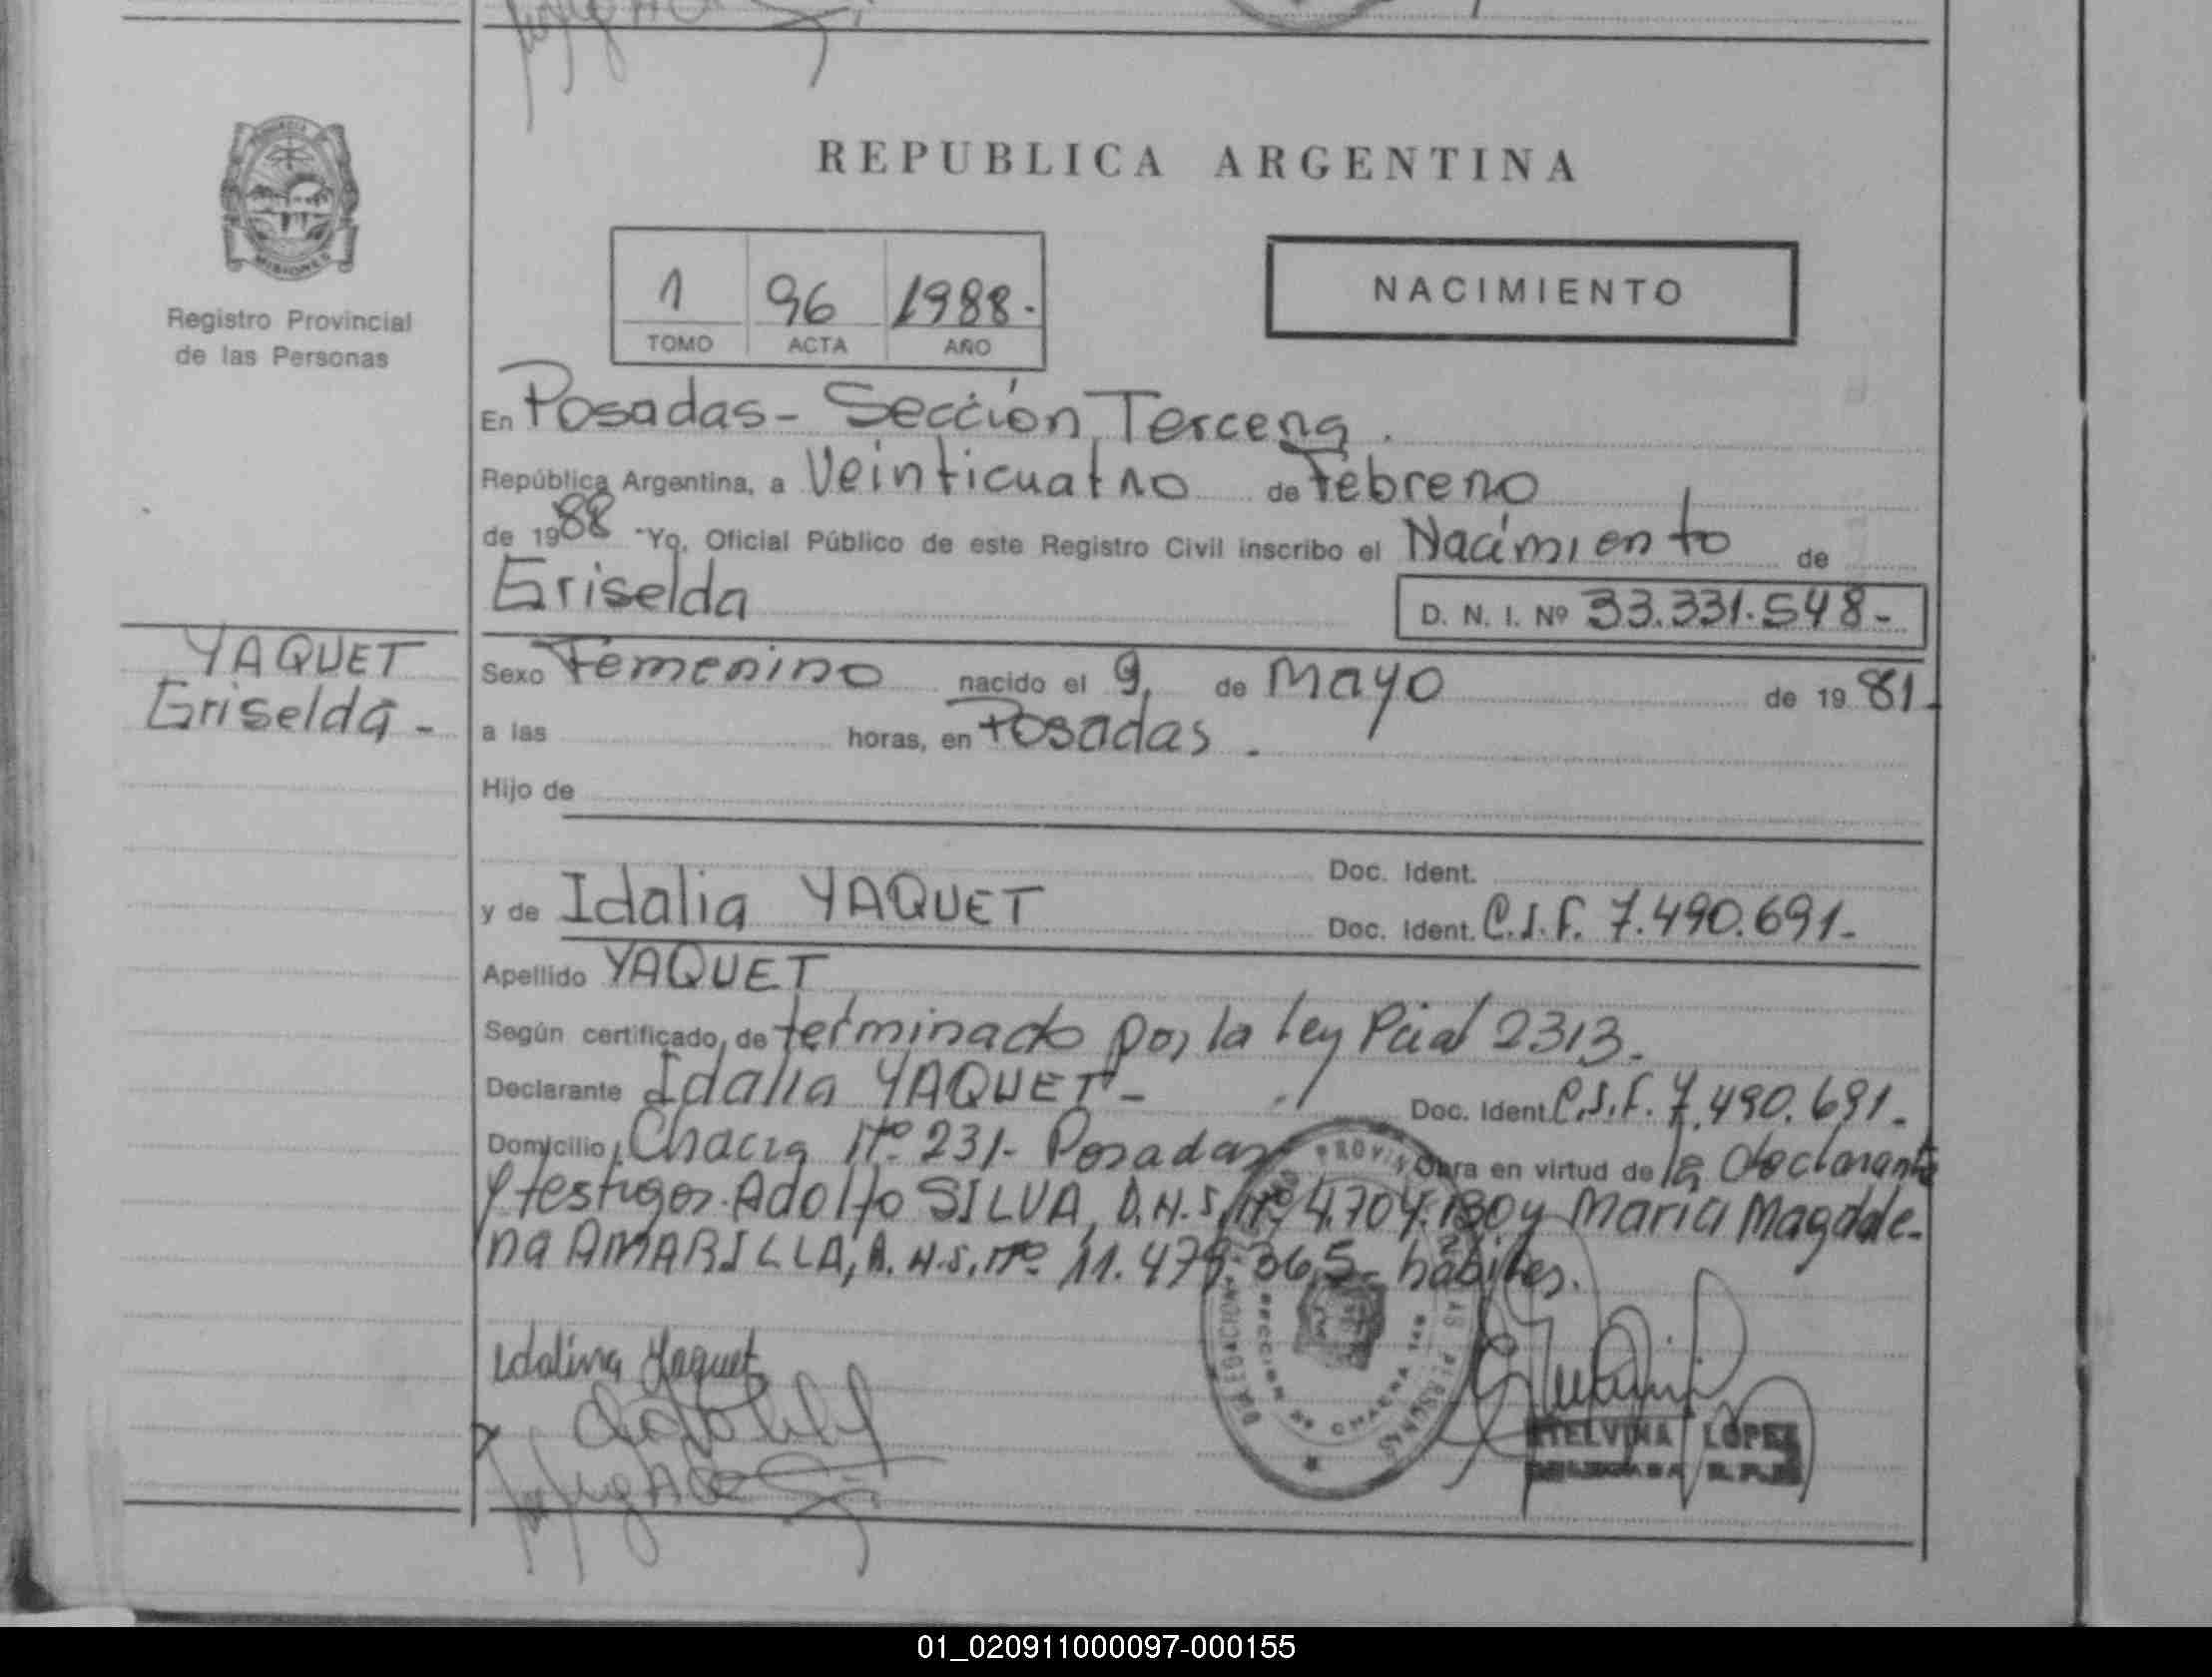 REPUBLICA ARGENTINA
PROVINCIA
MISIONES
Registro Provincial
de las Personas
1 96 1988.-
TOMO ACTA AÑO
NACIMIENTO
En Posadas - Sección Tercera.
República Argentina, a Veinticuatro de Febrero
de 1988 "Yo, Oficial Público de este Registro Civil inscribo el Nacimiento de
Griselda D. N. I. Nº 33.331.548-
YAQUET
Griselda -
Sexo Femenino nacido el 9, de Mayo de 1981-
a las horas, en Posadas.
Hijo de
Doc. Ident.
y de Idalia YAQUET Doc. Ident. C.I.F. 7.490.691-
Apellido YAQUET
Según certificado, de terminado por la ley Pcial 2313.
Declarante Idalia YAQUET- Doc. Ident. C.I.F. 7.490.691.-
Domicilio Chacra Nº 231- Posadas Obra en virtud de la declarante
y testigos Adolfo SILVA, D.N.I. Nº 4.704.130 y Maria Magdale-
na AMARILLA, D.N.I. Nº 11.479.365- hábiles.
Idalina Yaquet
ETELVINA LOPEZ
DELEGADA R.P.P.
01_020911000097-000155